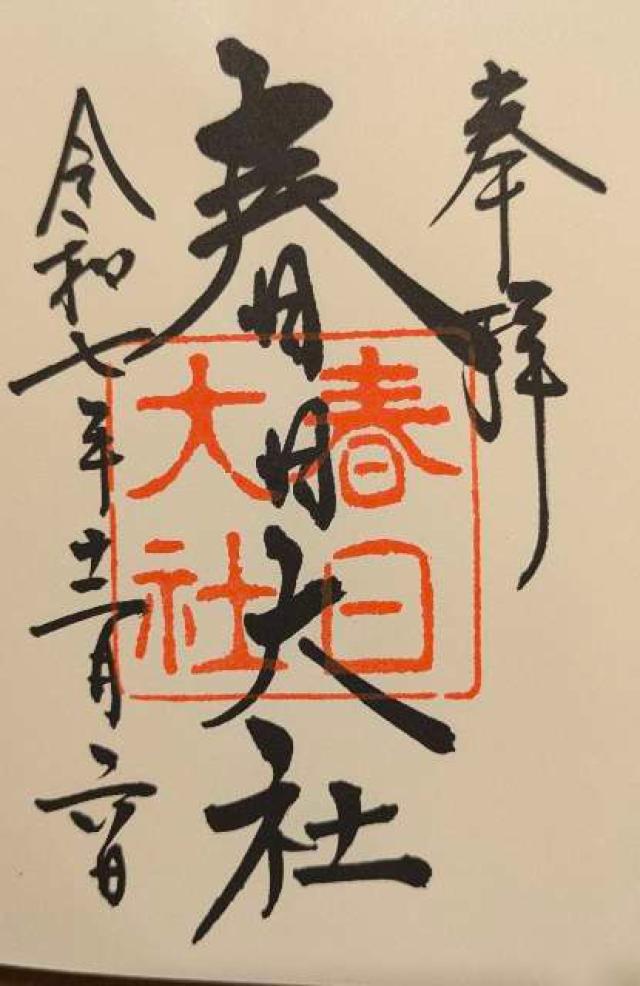 奉拝
春日大社
令和七年十二月六日
春日
大社